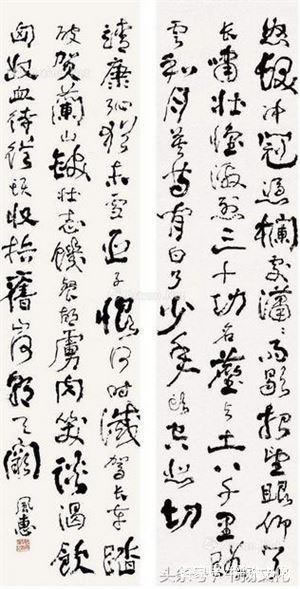 怒髮冲冠憑欄處瀟瀟雨歇抬望眼仰天
長嘯壯懷激烈三十功名塵与土八千里路
雲和月莫等閒白了少年頭空悲切
靖康恥猶未雪臣子恨何时滅駕長車踏
破賀蘭山缺壯志饑餐胡虜肉笑談渴飲
匈奴血待從頭收拾舊山河朝天闕
風惠
头条号